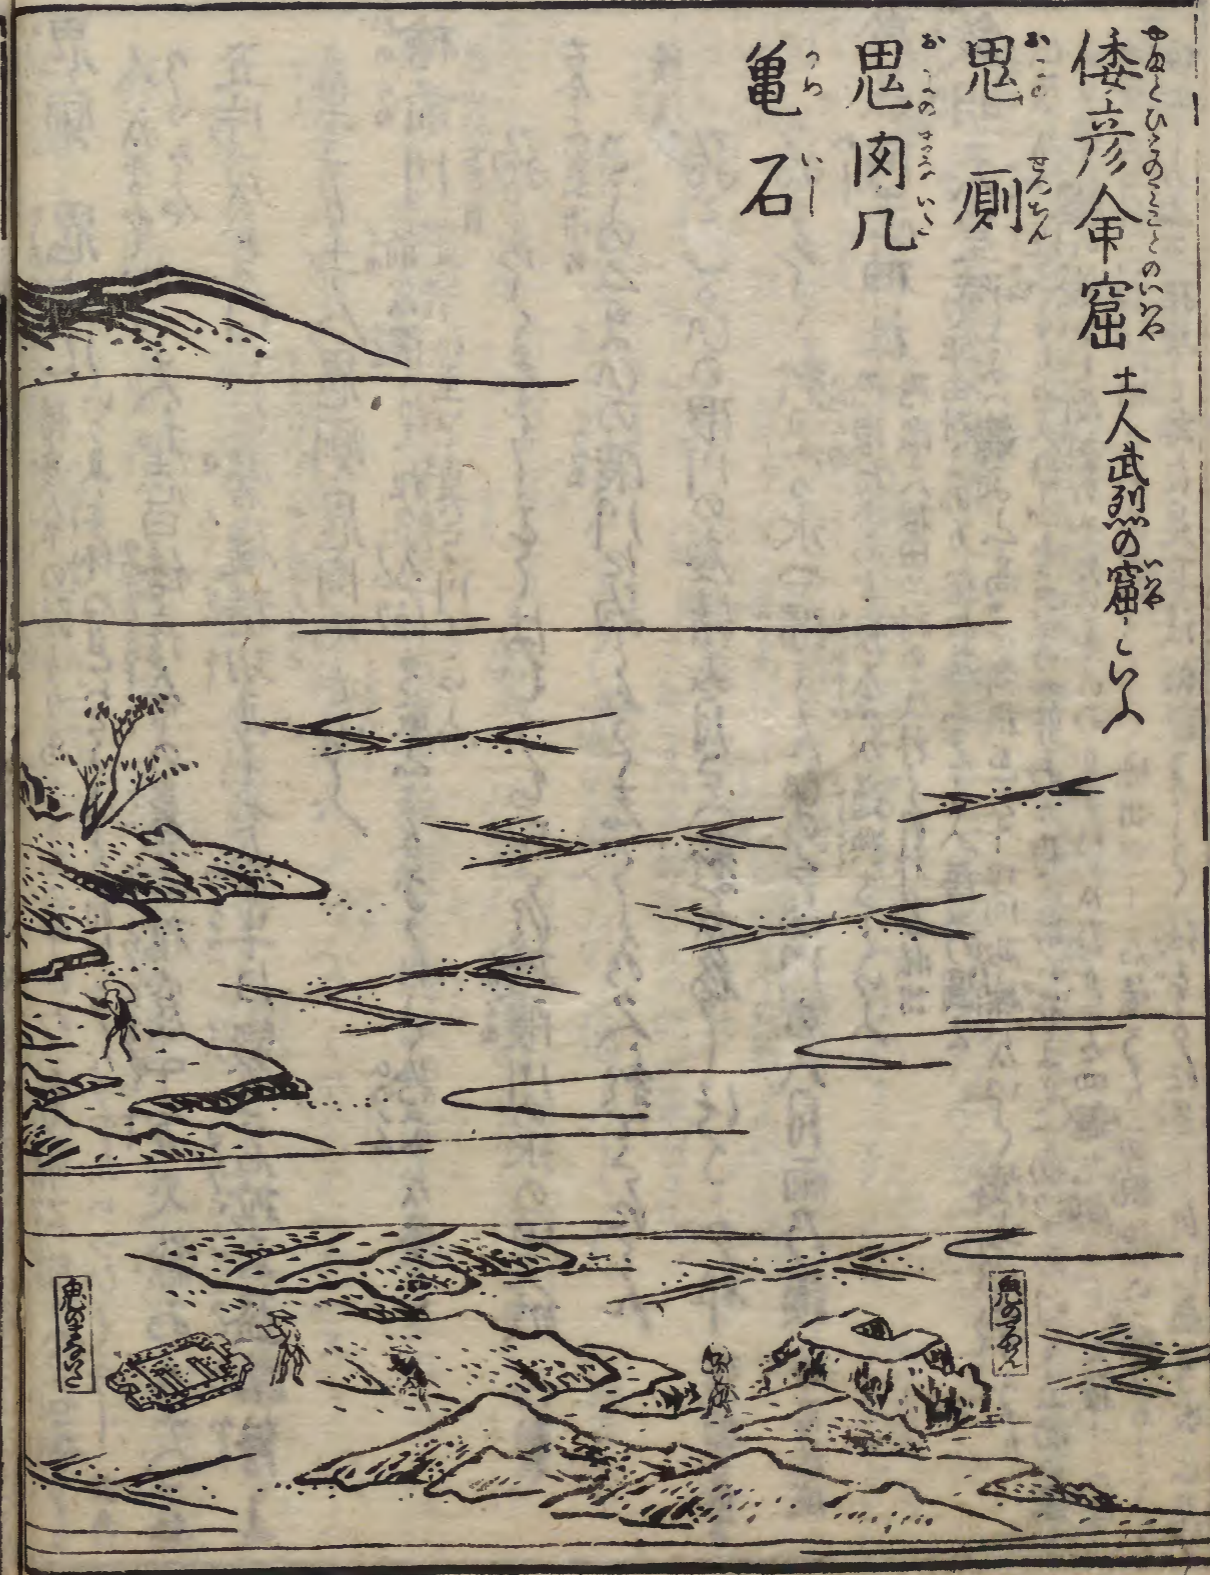 倭彦命窟 土人武烈の窟といふ
やまとひこのみことのいはや
いはや
鬼厠
おにの せつちん
鬼肉几
おにの まないた
亀石
かめ いし
鬼のせつちん
鬼のまないた